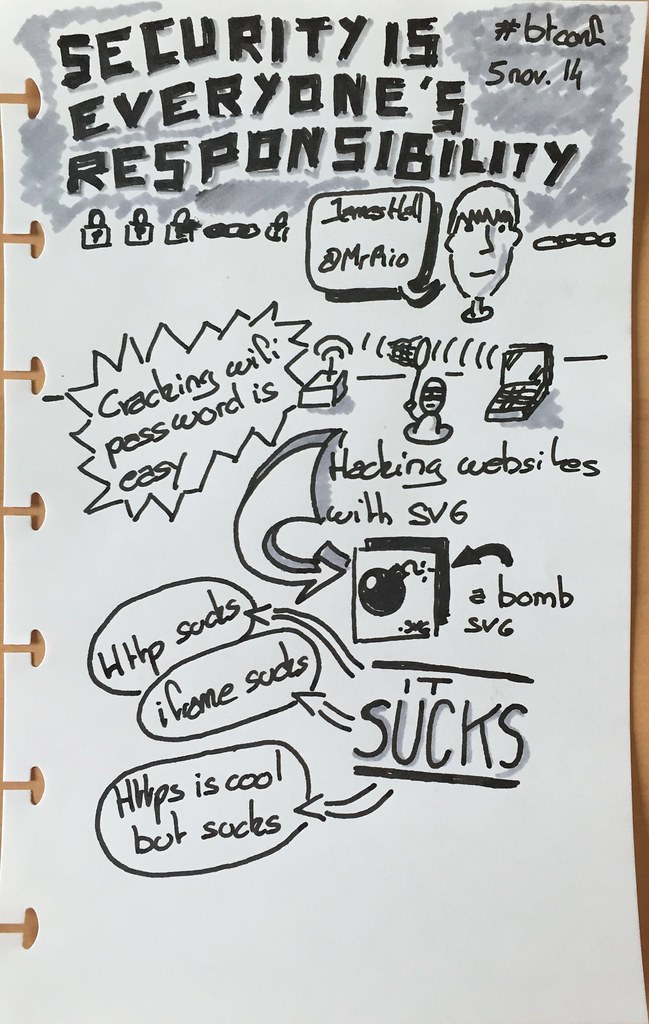 SECURITY IS
EVERYONE'S
RESPONSIBILITY
#btconf
5 nov. 14
James Hall
@MrRio
Cracking wifi
password is
easy
Hacking websites
with SVG
.SVG
a bomb
SVG
Http sucks
iframe sucks
IT
SUCKS
Https is cool
but sucks